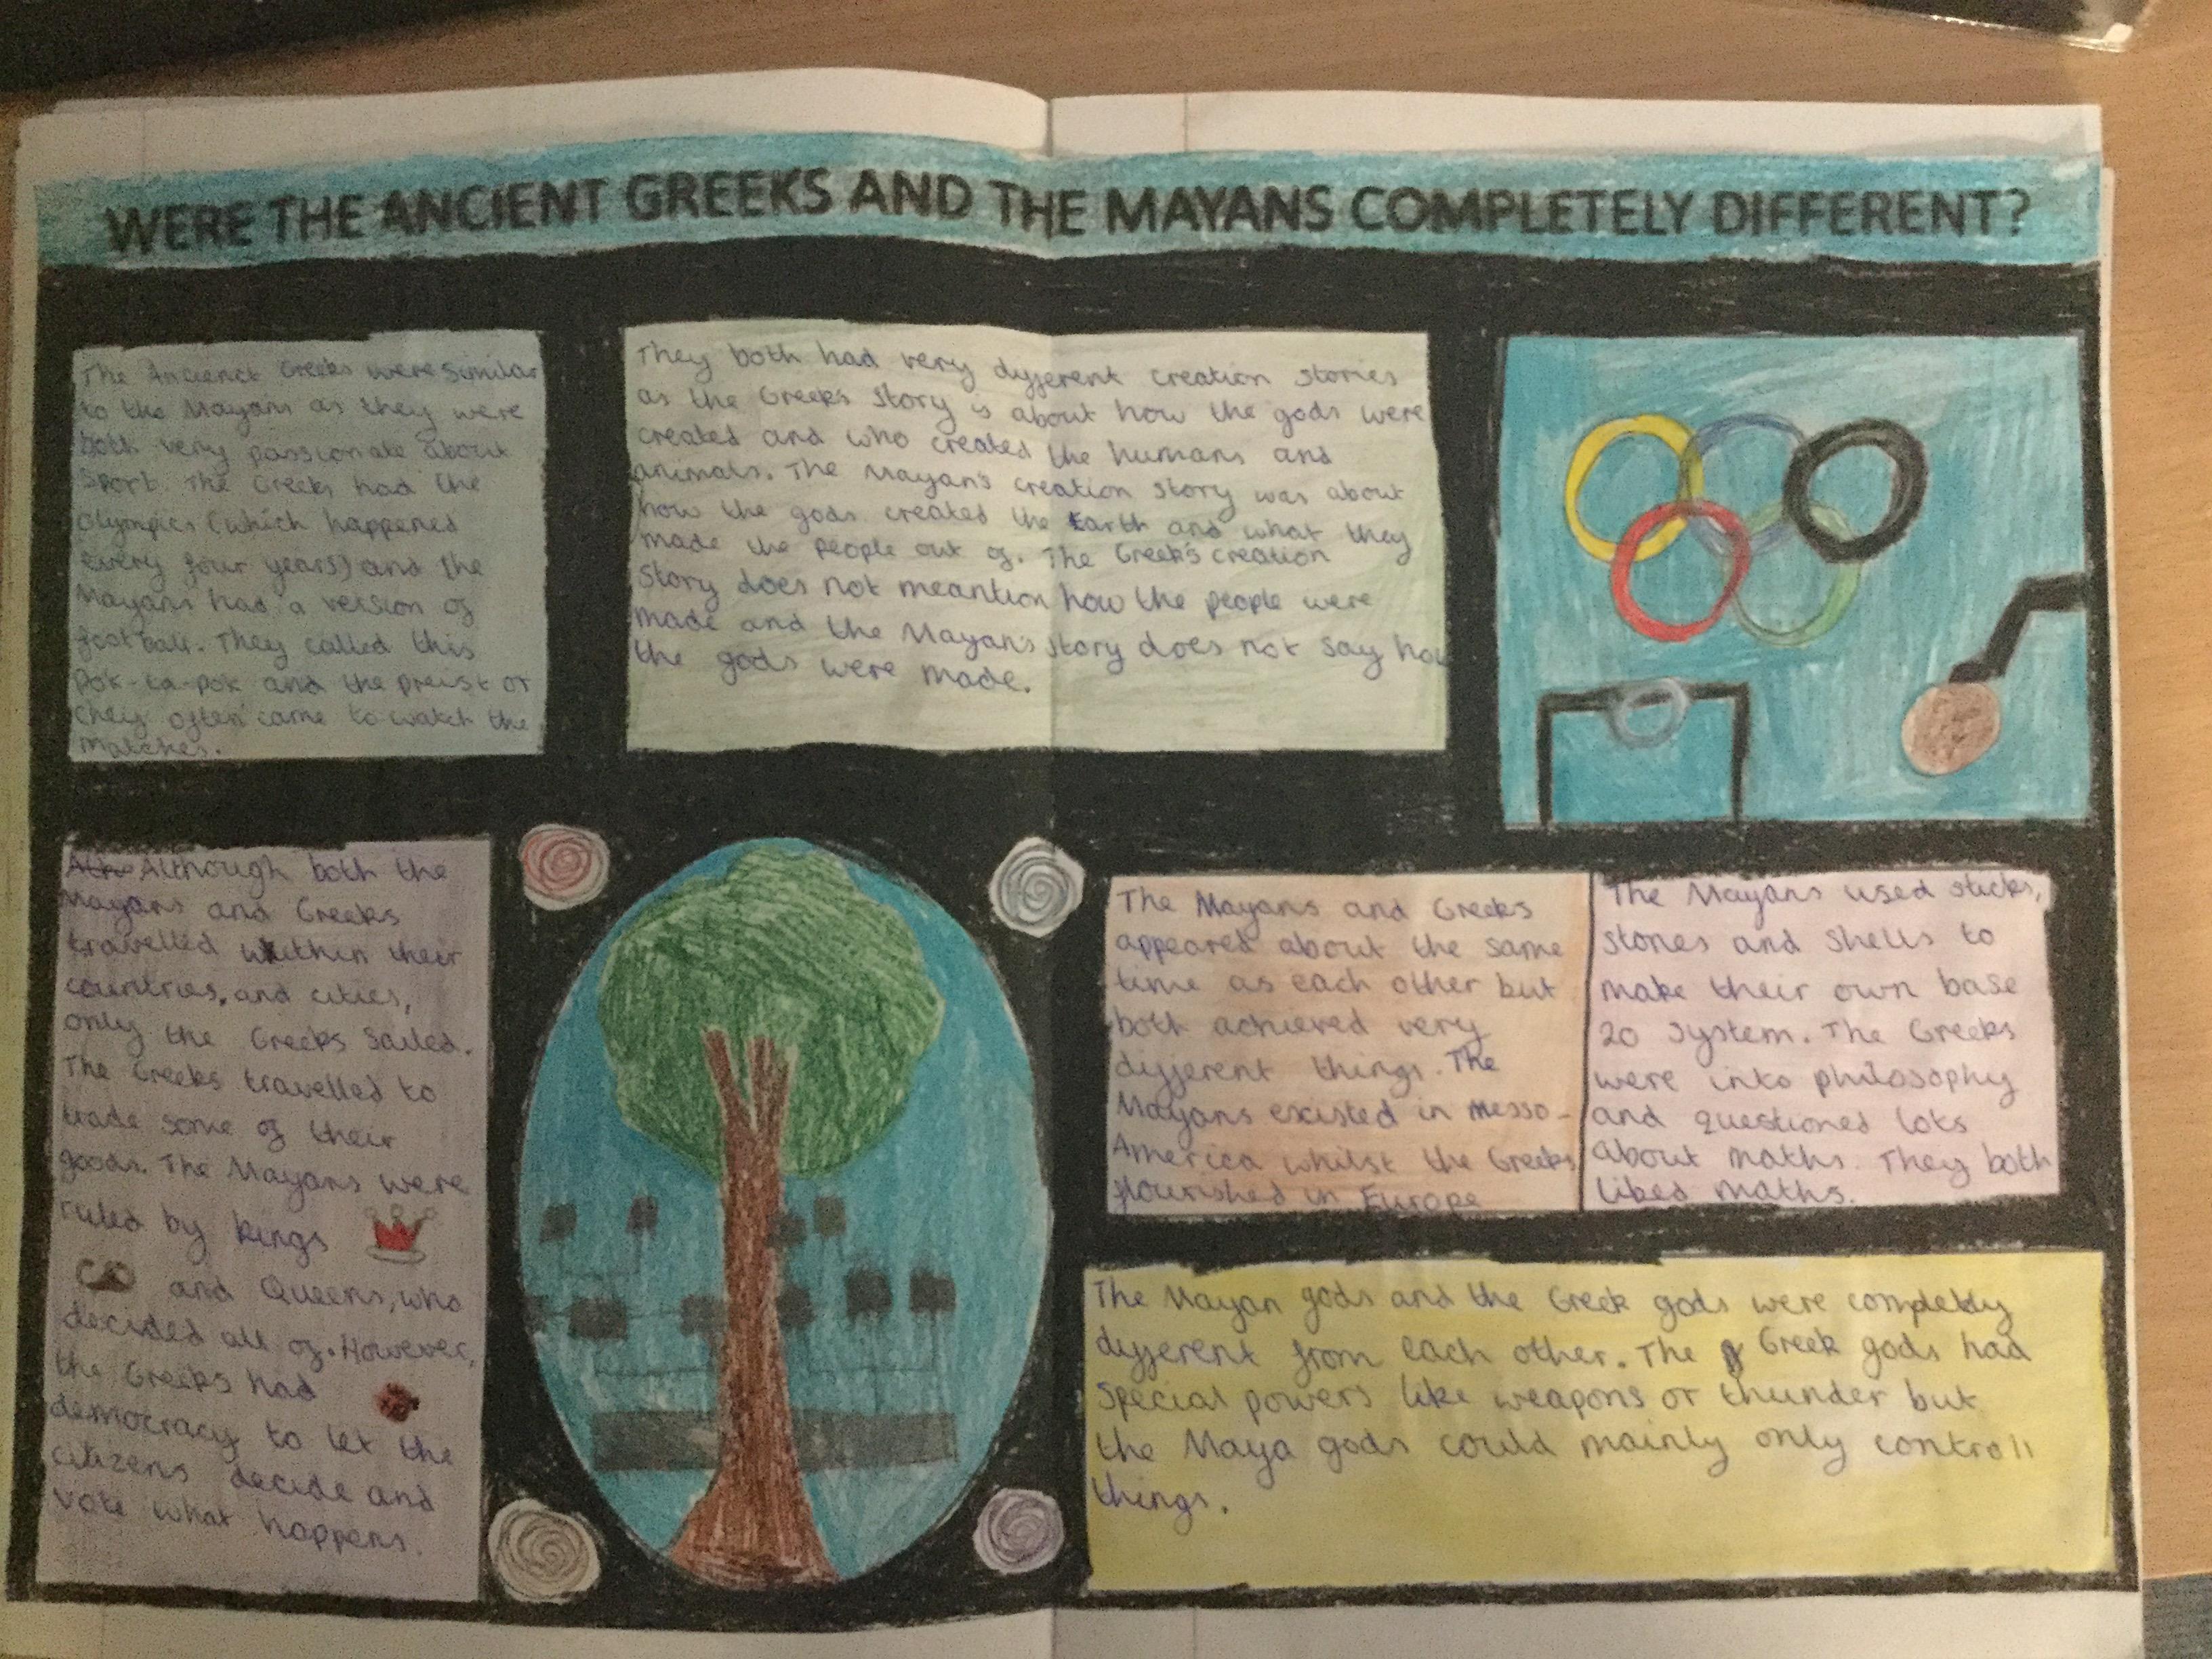 WERE THE ANCIENT GREEKS AND THE MAYANS COMPLETELY DIFFERENT?
The Ancienct Greeks were similar
to the Mayans as they were
both very passionate about
sport. The Greeks had the
Olympics (which happened
every four years) and the
Mayans had a version of
football. They called this
pok-ta-pok and the preist or
they often came to watch the
matches.
They both had very different creation stories
as the Greeks story is about how the gods were
created and who created the humans and
animals. The Mayan's creation story was about
how the gods created the Earth and what they
made the people out of. The Greek's creation
story does not meantion how the people were
made and the Mayan's story does not say how
the gods were made.
Although both the
Mayans and Greeks
travelled within their
countries, and cities,
only the Greeks sailed.
The Greeks travelled to
trade some of their
goods. The Mayans were
ruled by kings
and Queens, who
decided all of. However,
the Greeks had
democracy to let the
citizens decide and
vote what happens.
The Mayans and Greeks
appeared about the same
time as each other but
both achieved very
different things. The
Mayans existed in Messo-
America whilst the Greeks
flourished in Europe
The Mayans used sticks,
stones and shells to
make their own base
20 system. The Greeks
were into philosophy
and questioned lots
about maths. They both
liked maths.
The Mayan gods and the Greek gods were completely
different from each other. The Greek gods had
special powers like weapons or thunder but
the Maya gods could mainly only controll
things.